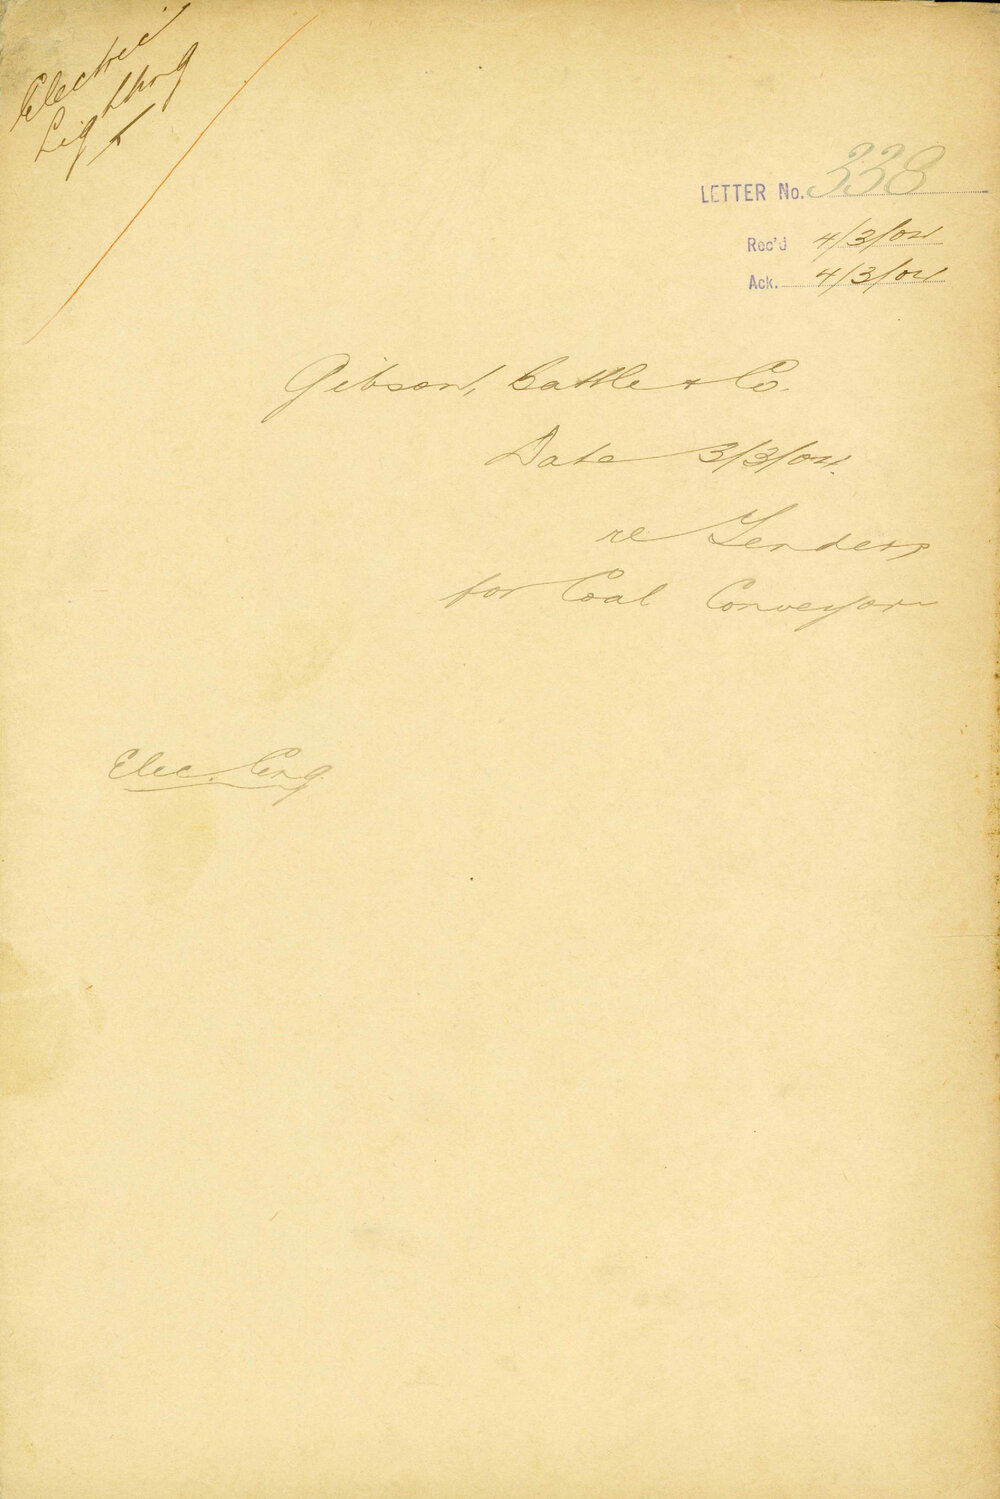 Electric
Lighting
LETTER No. 338
Rec'd 4/3/04
Ack. 4/3/04
Gibson, Battle & Co.
Date 3/3/04.
re Tenders
for Coal Conveyor
Elec. Eng.